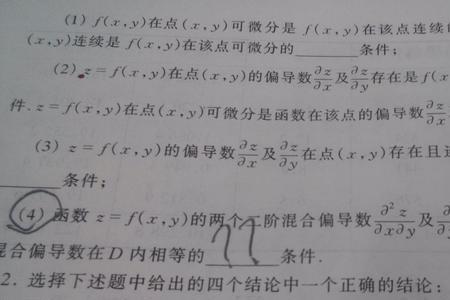 (1) f(x,y)在点(x,y)可微分是 f(x,y)在该点连续
(x,y)连续是 f(x,y)在该点可微分的________条件;
(2) z=f(x,y)在点(x,y)的偏导数∂z/∂x及∂z/∂y存在是 f(x
件. z=f(x,y)在点(x,y)可微分是函数在该点的偏导数∂z/∂x
(3) z=f(x,y)的偏导数∂z/∂x及∂z/∂y在点(x,y)存在且
________条件;
(4) 函数 z=f(x,y)的两个二阶混合偏导数∂²z/∂x∂y及
混合偏导数在D内相等的 ?? 条件.
2. 选择下述题中给出的四个结论中一个正确的结论: